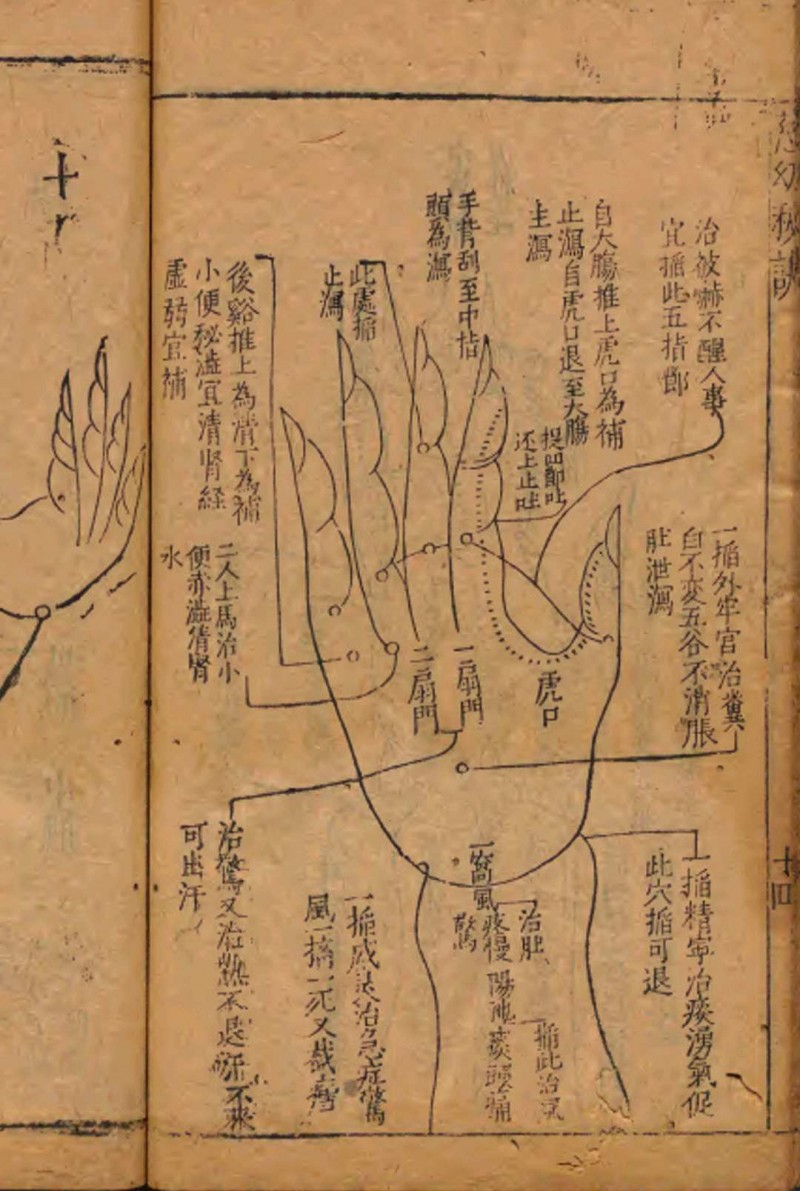 慈幼秘訣
十四
治被嚇不醒人事
宜掐此五指節
自大膓推上虎口為補
止瀉自虎口退至大膓
主瀉
手背刮至中指
頭為瀉
此處掐
止瀉
後谿推上為清下為補
小便秘澁宜清腎経
虛弱宜補
提凹節吐
还上止吐
一掐外牢宮治糞
白不変五谷不消脹
肚泄瀉
二人上馬治小
便赤澁清腎
水
虎口
一扇門
二扇門
一掐精寧治痰湧氣促
此穴掐可退
一窩風
治肚
疼慢
驚
一掐此治
陽池
頭痛
一掐威
治急症驚
風一掐一死又
治驚又治熱不退汗不來
可出汗